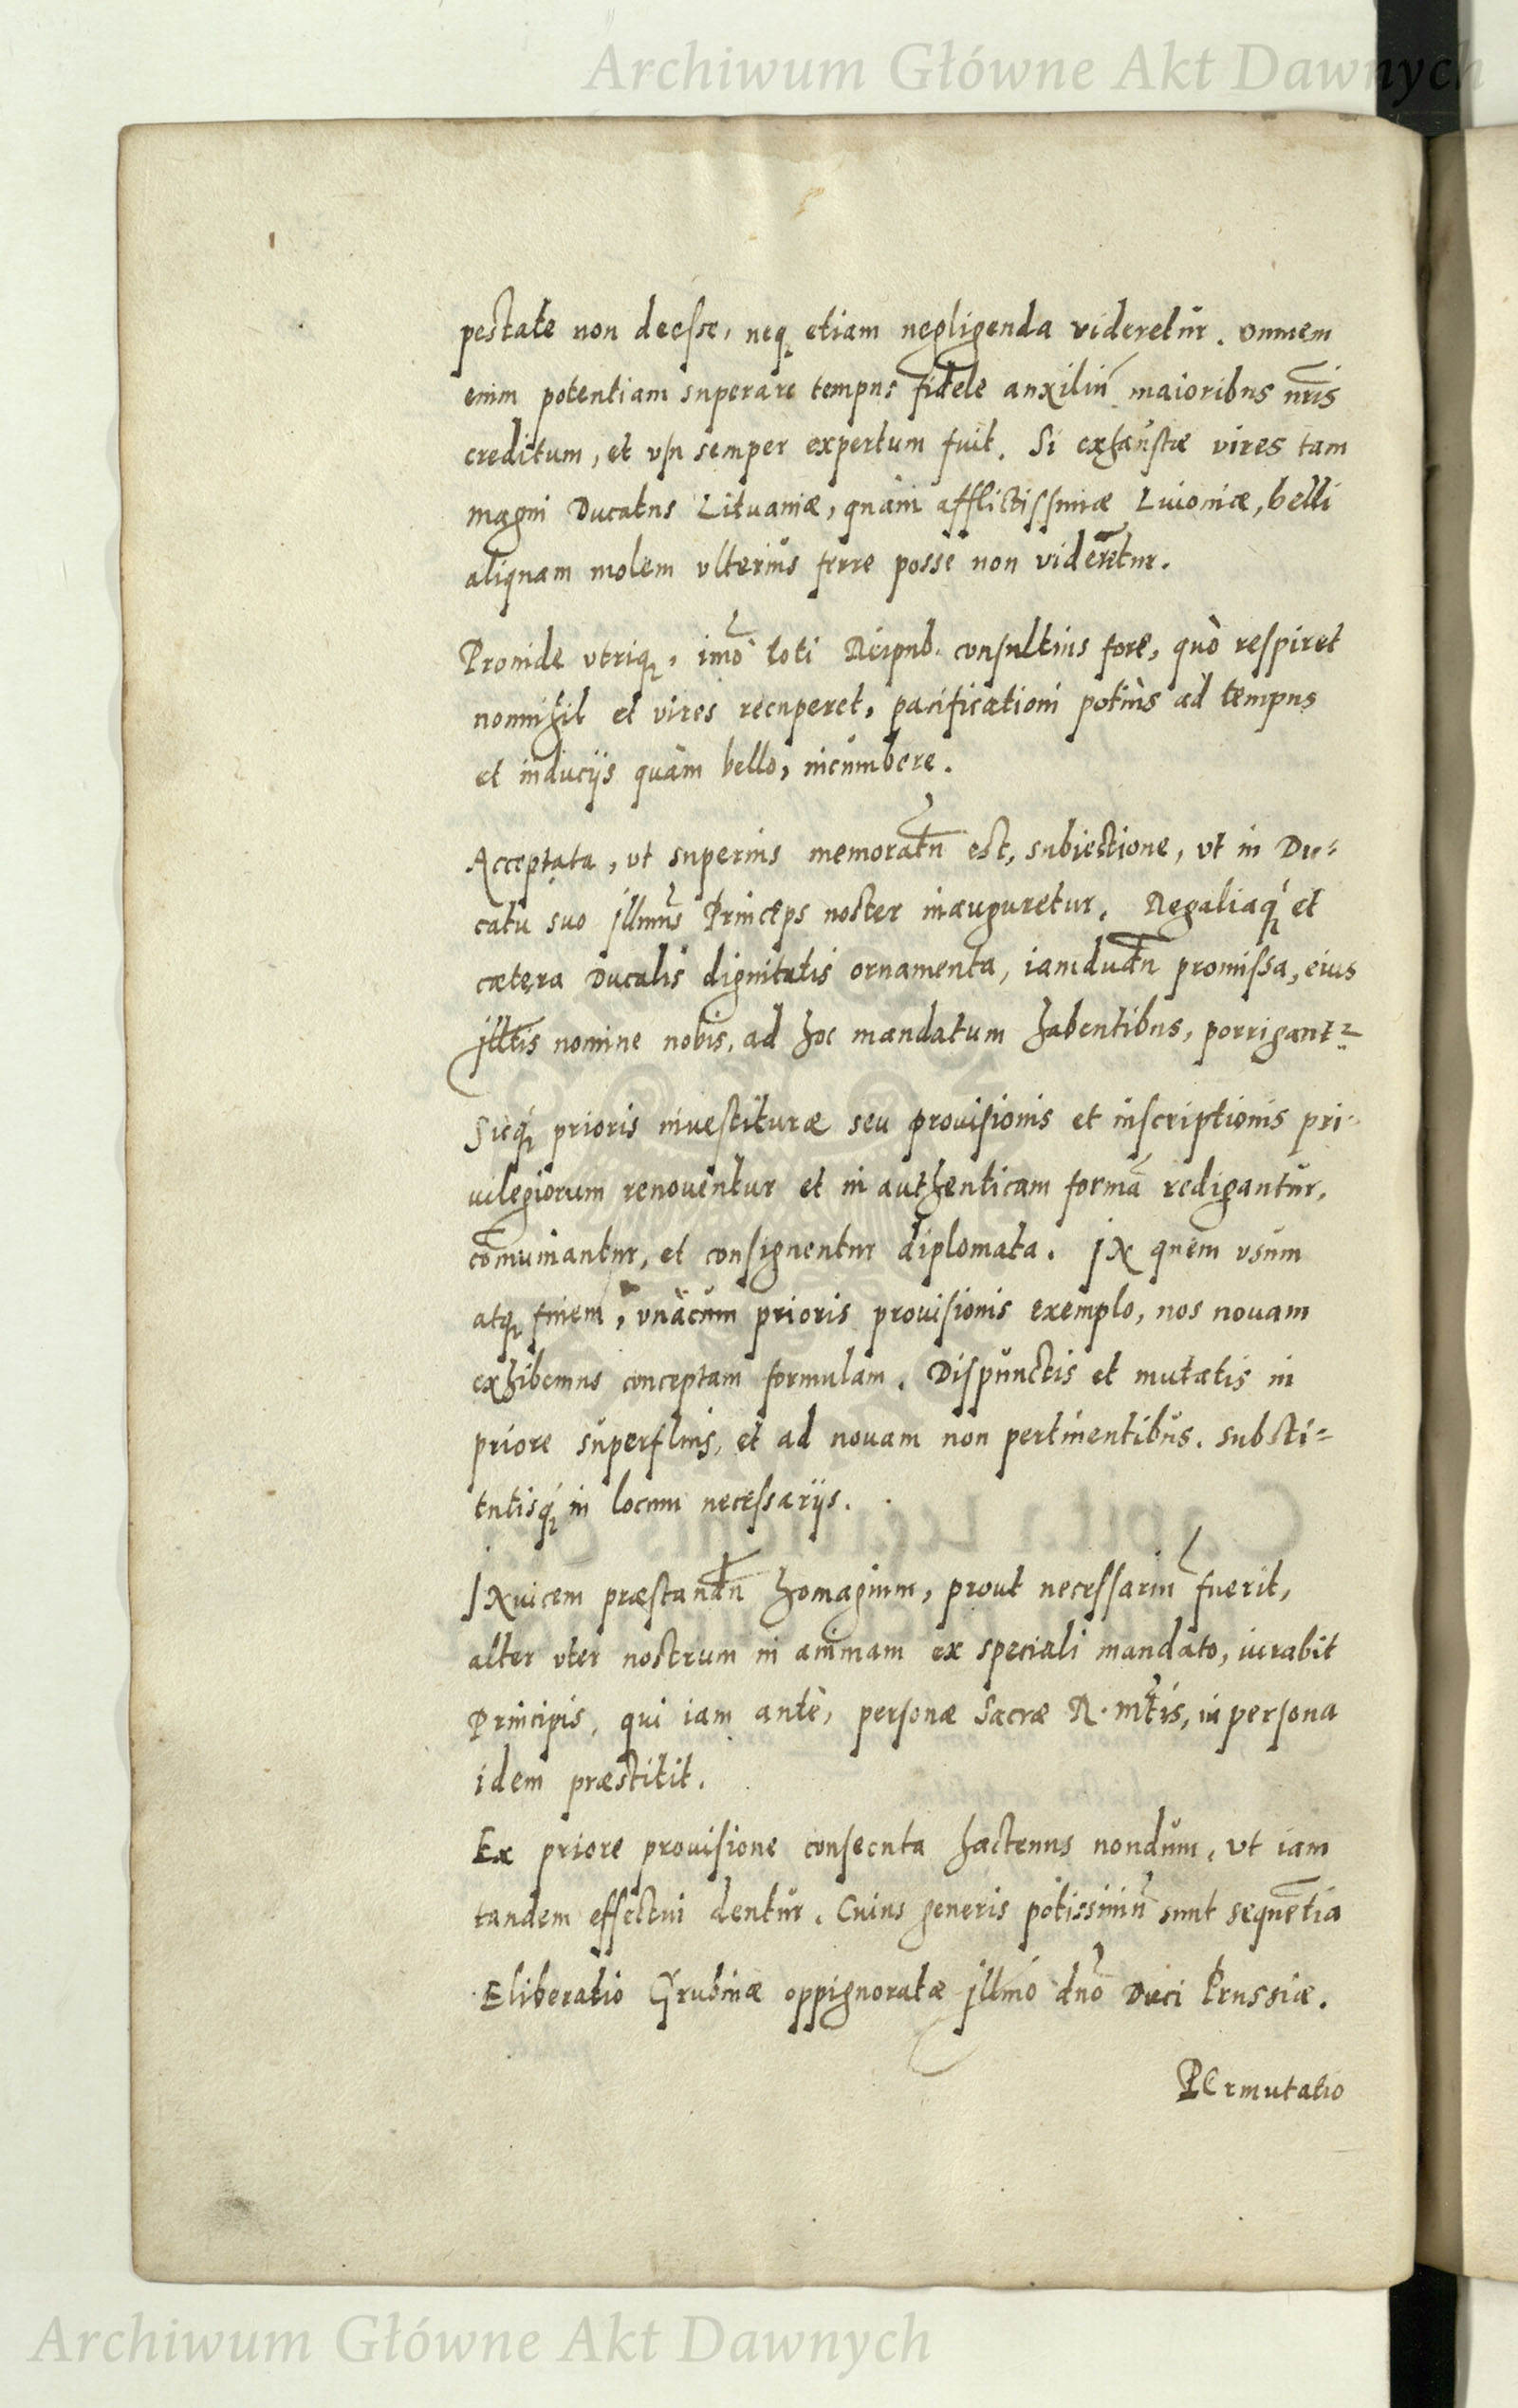 Archiwum Główne Akt Dawnych
pestate non deesse, neq₃ etiam negligenda videretur. Omnem
enim potentiam superare tempus fidele auxiliū maioribus nr̄is
creditum, et vsu semper expertum fuit. Si exhaustæ vires tam
magni Ducatus Lituaniæ, quàm afflictissimæ Liuoniæ, belli
aliquam molem vlterius ferre posse non viderētur.
Proinde vtriq₃, imò toti Reipub. consultius fore, quò respiret
nonnihil et vires recuperet, pacificationi potius ad tempus
et inducijs quàm bello, incumbere.
Acceptata, vt superius memoratū est, subiectione, vt in Du=
catu suo Jllmūs Princeps noster inauguretur, Regaliaq₃ et
cætera Ducalis dignitatis ornamenta, iamdudū promissa, eius
Jllt̄is nomine nobis, ad hoc mandatum habentibus, porrigant²
Sicq₃ prioris inuestituræ seu prouisionis et inscriptionis pri-
uilegiorum renouentur et in authenticam formā redigantur,
com̄uniantur, et consignentur diplomata. JN quem vsum
atq₃ finem, vnàcum prioris prouisionis exemplo, nos nouam
exhibemus conceptam formulam. Dispunctis et mutatis in
priore superfluis, et ad nouam non pertinentibus. substi=
tutisq₃ in locum necessarijs.
JNuicem præstandū homagium, prout necessariū fuerit,
alter vter nostrum in animam ex speciali mandato, iurabit
Principis, qui iam antè, personæ Sacræ R. Mt̄is, in persona
idem præstitit.
Ex priore prouisione consecuta hactenus nondum, vt iam
tandem effectui dentur. Cuius generis potissimū sunt sequētia
Eliberatio Grubinæ oppignoratæ Jllmō dn̄o Duci Prussiæ.
PErmutatio
Archiwum Główne Akt Dawnych